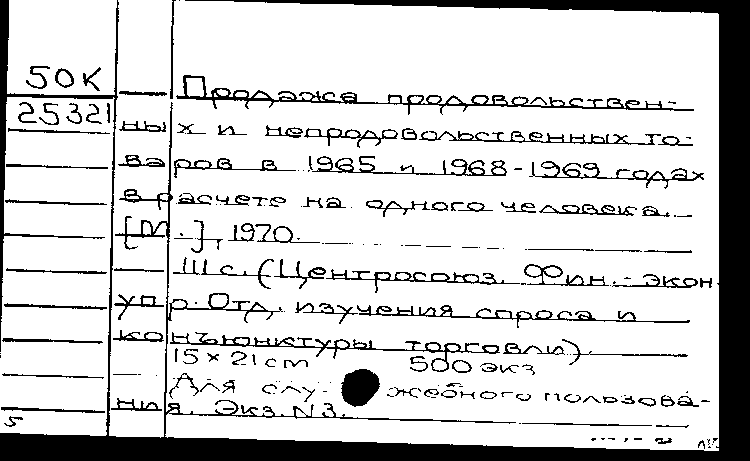 50К
25321
Продажа продовольствен-
ных и непродовольственных то-
варов в 1965 и 1968-1969 годах
в расчете на одного человека.
[М.], 1970.
111 с. (Центросоюз. Фин.-экон.
упр. Отд. изучения спроса и
конъюнктуры торговли).
15 × 21 cm 500 экз
Для слу- жебного пользова-
ния. Экз. N 3.
5